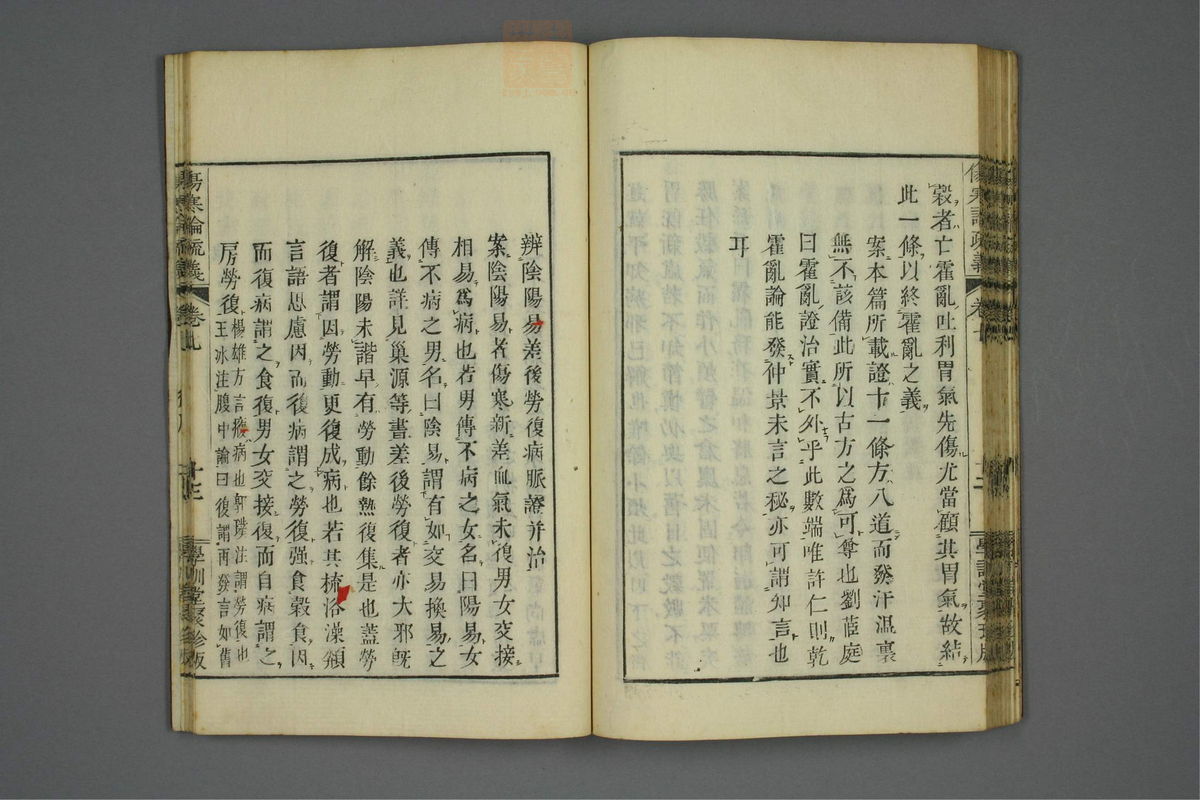 傷寒論疏義
卷七
學訓堂聚珍版
穀者亡霍亂吐利胃氣先傷尤當顧其胃氣故結
此一條以終霍亂之義
案本篇所載證十一條方八道而發汗溫裏
無不該備此所以古方之爲可尊也劉茝庭
曰霍亂證治實不外乎此數端唯許仁則乾
霍亂論能發仲景未言之秘亦可謂知言也
耳
辨陰陽易差後勞復病脈證并治
案陰陽易者傷寒新差血氣未復男女交接
相易爲病也若男傳不病之女名曰陽易女
傳不病之男名曰陰易謂有如交易換易之
義也詳見巢源等書差後勞復者亦大邪旣
解陰陽未諧早有勞動餘熱復集是也蓋勞
復者謂因勞動更復成病也若其梳浴澡頮
言語思慮因而復病謂之勞復强食穀食因
而復病謂之食復男女交接復而自病謂之
房勞復
楊雄方言㾱病也郭璞注謂勞復也
王冰注腹中論曰復謂再發言如舊
傷寒論疏義
卷七
十三
學訓堂聚珍版